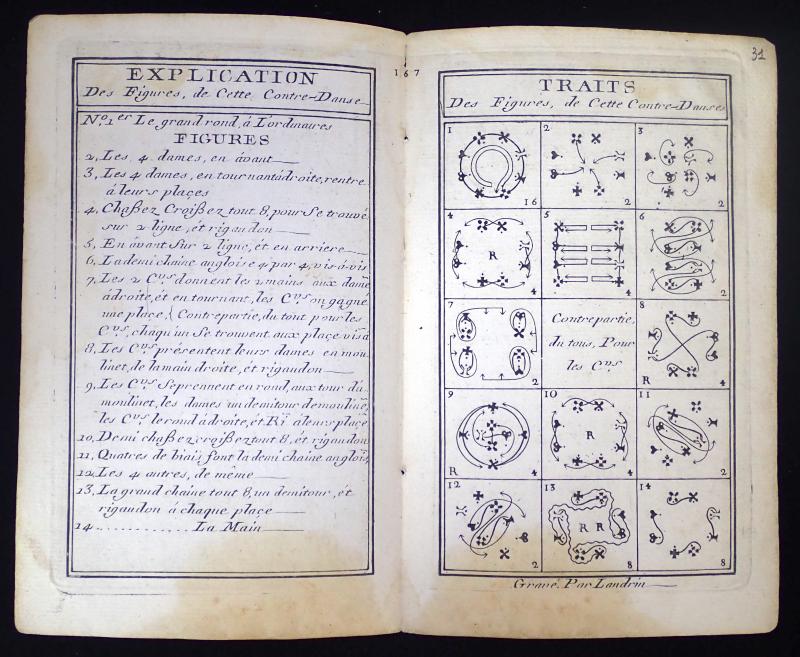 EXPLICATION
Des Figures, de Cette, Contre-Danse
N.º 1.er Le grand rond, á L'ordinaires
FIGURES
2, Les 4 dames, en ávant
3, Les 4 dames, en tournant ádroite, rentre
á leurs plaçes
4, Chaßez Croißez tout 8, pour se trouvé
sur 2 ligne, ét rigaudon
5, En ávant sur 2 ligne, ét en arriere
6, La demi chaine angloise 4 par 4, vis-á-vis
7, Les 2 C.vrs donnent les 2 mains aux dame
ádroite, ét en tournant, les C.vrs on gagné
une plaçe, (Contrepartie, du tout pour les
C.vrs, chaqu'un se trouvent aux plaçe vis á
8, Les C.vrs présentent leurs dames en mou-
linet, de la main droite, ét rigaudon
9, Les C.vrs se prennent en rond, aux tour du
moulinet, les dames un demitour de moulinet
les C.vrs le rond ádroite, ét Rï á leurs plaçe
10, Demi chaßez croißez tout 8, ét rigaudon
11, Quatres de biais, font la demi chaine anglois
12, Les 4 autres, de même
13, La grand chaine tout 8, un demitour, ét
rigaudon á chaque plaçe
14 ............... La Main
167
31
TRAITS
Des Figures, de Cette Contre-Danses
1 2 3
16 2 2
4 5 6
R
4 4 2
7 8
Contrepartie,
du tous, Pour
les C.vrs
2 R 4
9 10 11
R
R 4 4 2
12 13 14
R R
2 8 8
Gravé, Par Landrin